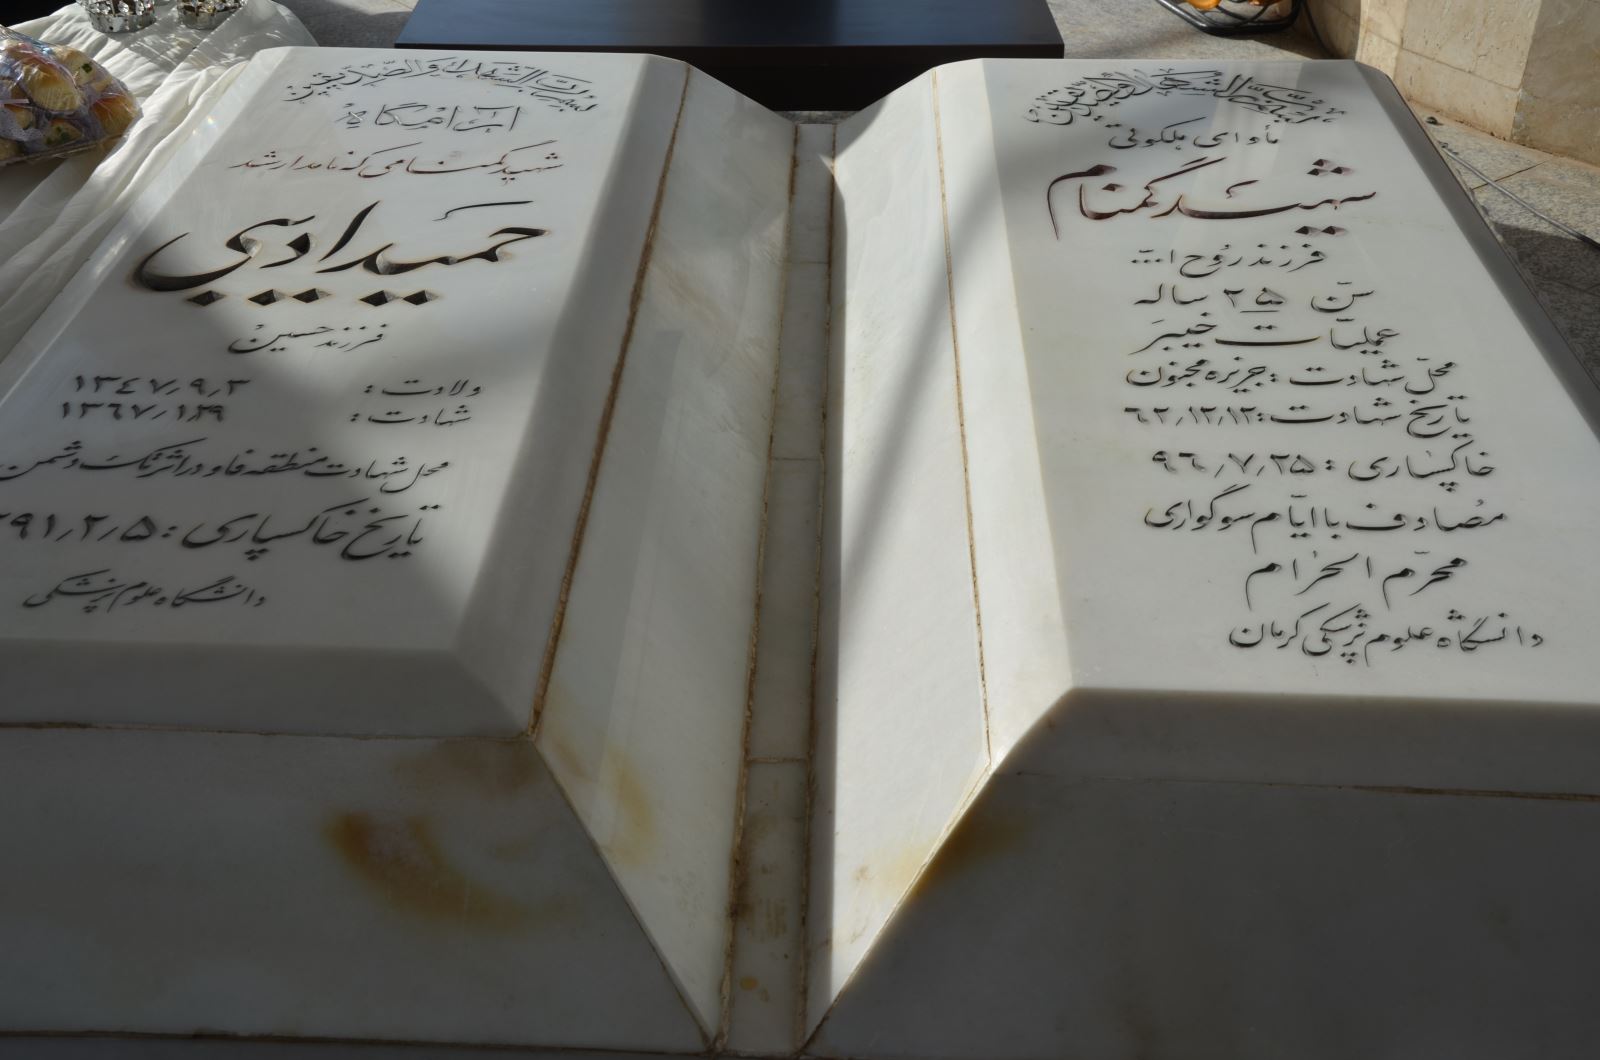 بسم رب الشهداء و الصدیقین
مأوای ملکوتی
شهید گمنام
فرزند روح ا...
سن ۲۵ ساله
عملیات خیبر
محل شهادت : جزیره مجنون
تاریخ شهادت : ۶۲/۱۲/۱۲
خاکسپاری : ۹۶/۷/۲۵
مصادف با ایام سوگواری
محرم الحرام
دانشگاه علوم پزشکی کرمان
بسم رب الشهداء و الصدیقین
آرامگاه
شهید گمنامی که نامدار شد
حمید ادیبی
فرزند حسین
ولادت : ۱۳۴۷/۹/۳
شهادت : ۱۳۶۷/۱/۲۹
محل شهادت منطقه فاو در اثر تک دشمن
تاریخ خاکسپاری : ۹۱/۲/۵
دانشگاه علوم پزشکی